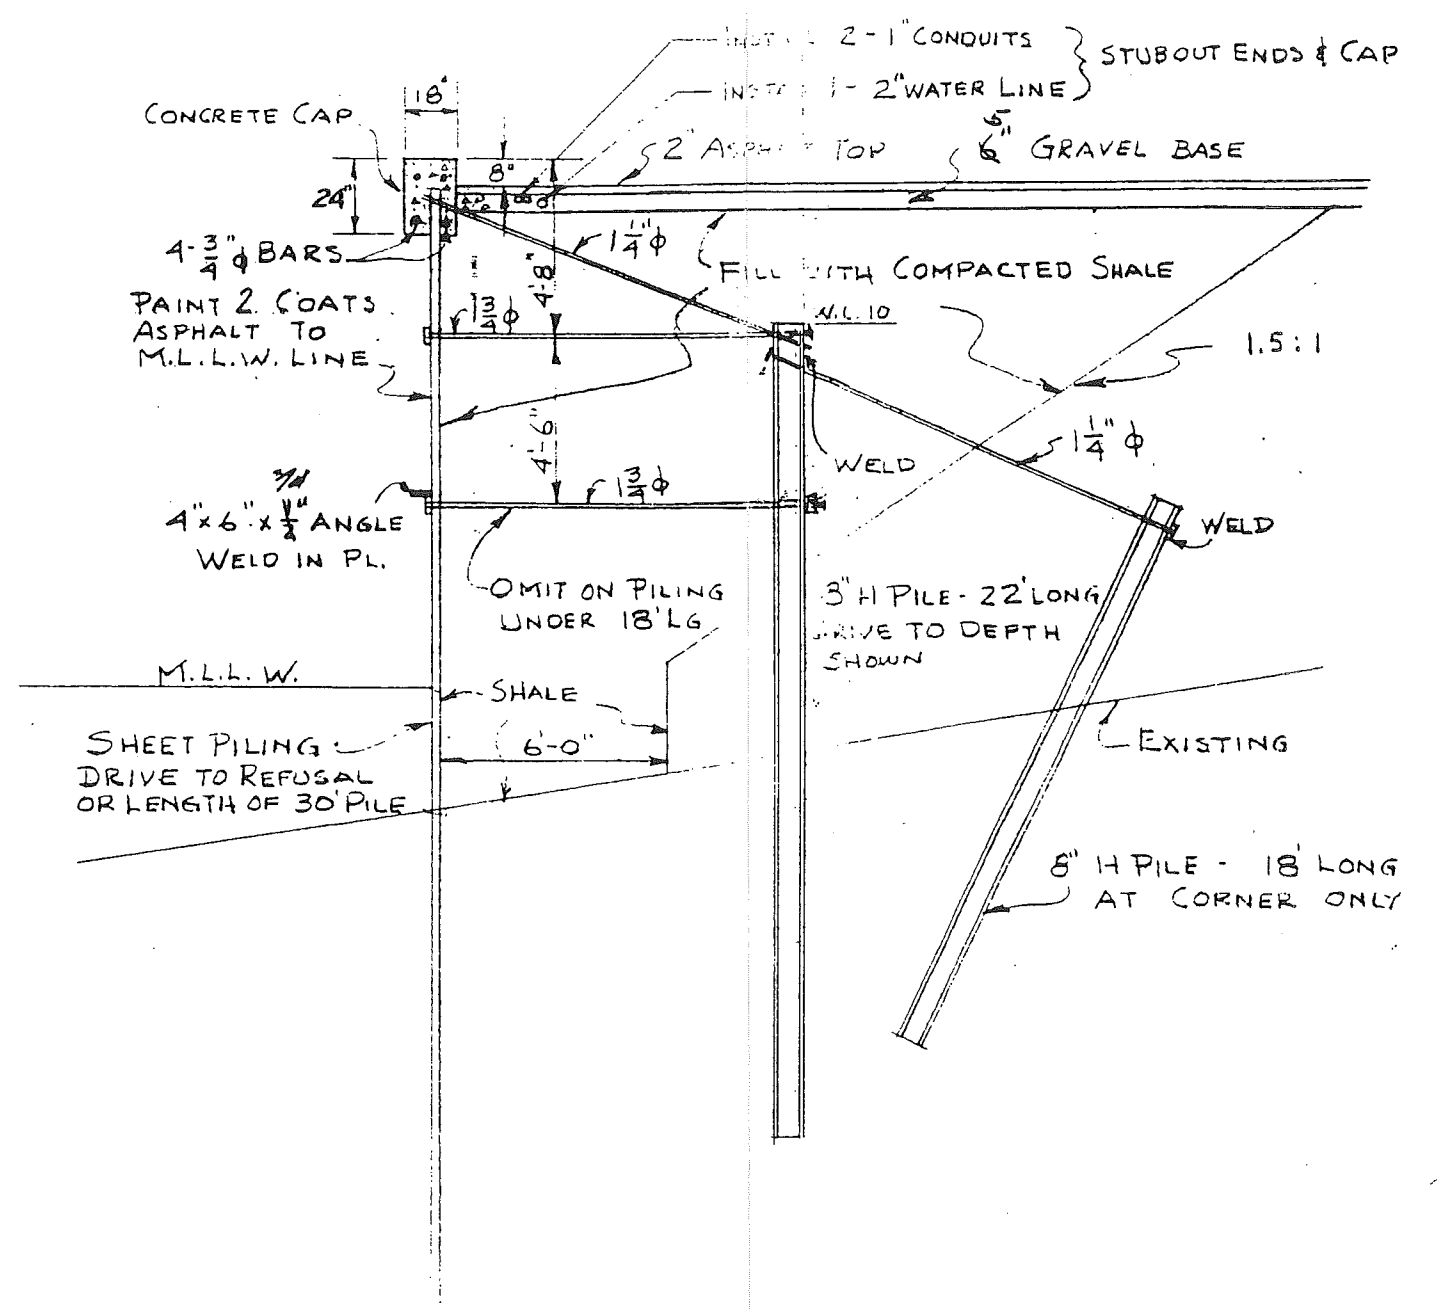 2-1" CONDUITS
1-2" WATER LINE
STUBOUT ENDS & CAP
18"
CONCRETE CAP
8"
2" ASPHALT TOP
5
6" GRAVEL BASE
24"
4-3/4" ϕ BARS
1 1/4" ϕ
4'-8"
FILL WITH COMPACTED SHALE
PAINT 2 COATS
ASPHALT TO
M.L.L.W. LINE
1 3/4 ϕ
10
1.5:1
4'-6"
WELD
1 1/4" ϕ
3/4
4" x 6" x 1/2" ANGLE
WELD IN PL.
1 3/4 ϕ
WELD
OMIT ON PILING
UNDER 18' LG
3" H PILE - 22' LONG
DRIVE TO DEPTH
SHOWN
M.L.L.W.
SHALE
6'-0"
SHEET PILING
DRIVE TO REFUSAL
OR LENGTH OF 30' PILE
EXISTING
8" H PILE - 18' LONG
AT CORNER ONLY